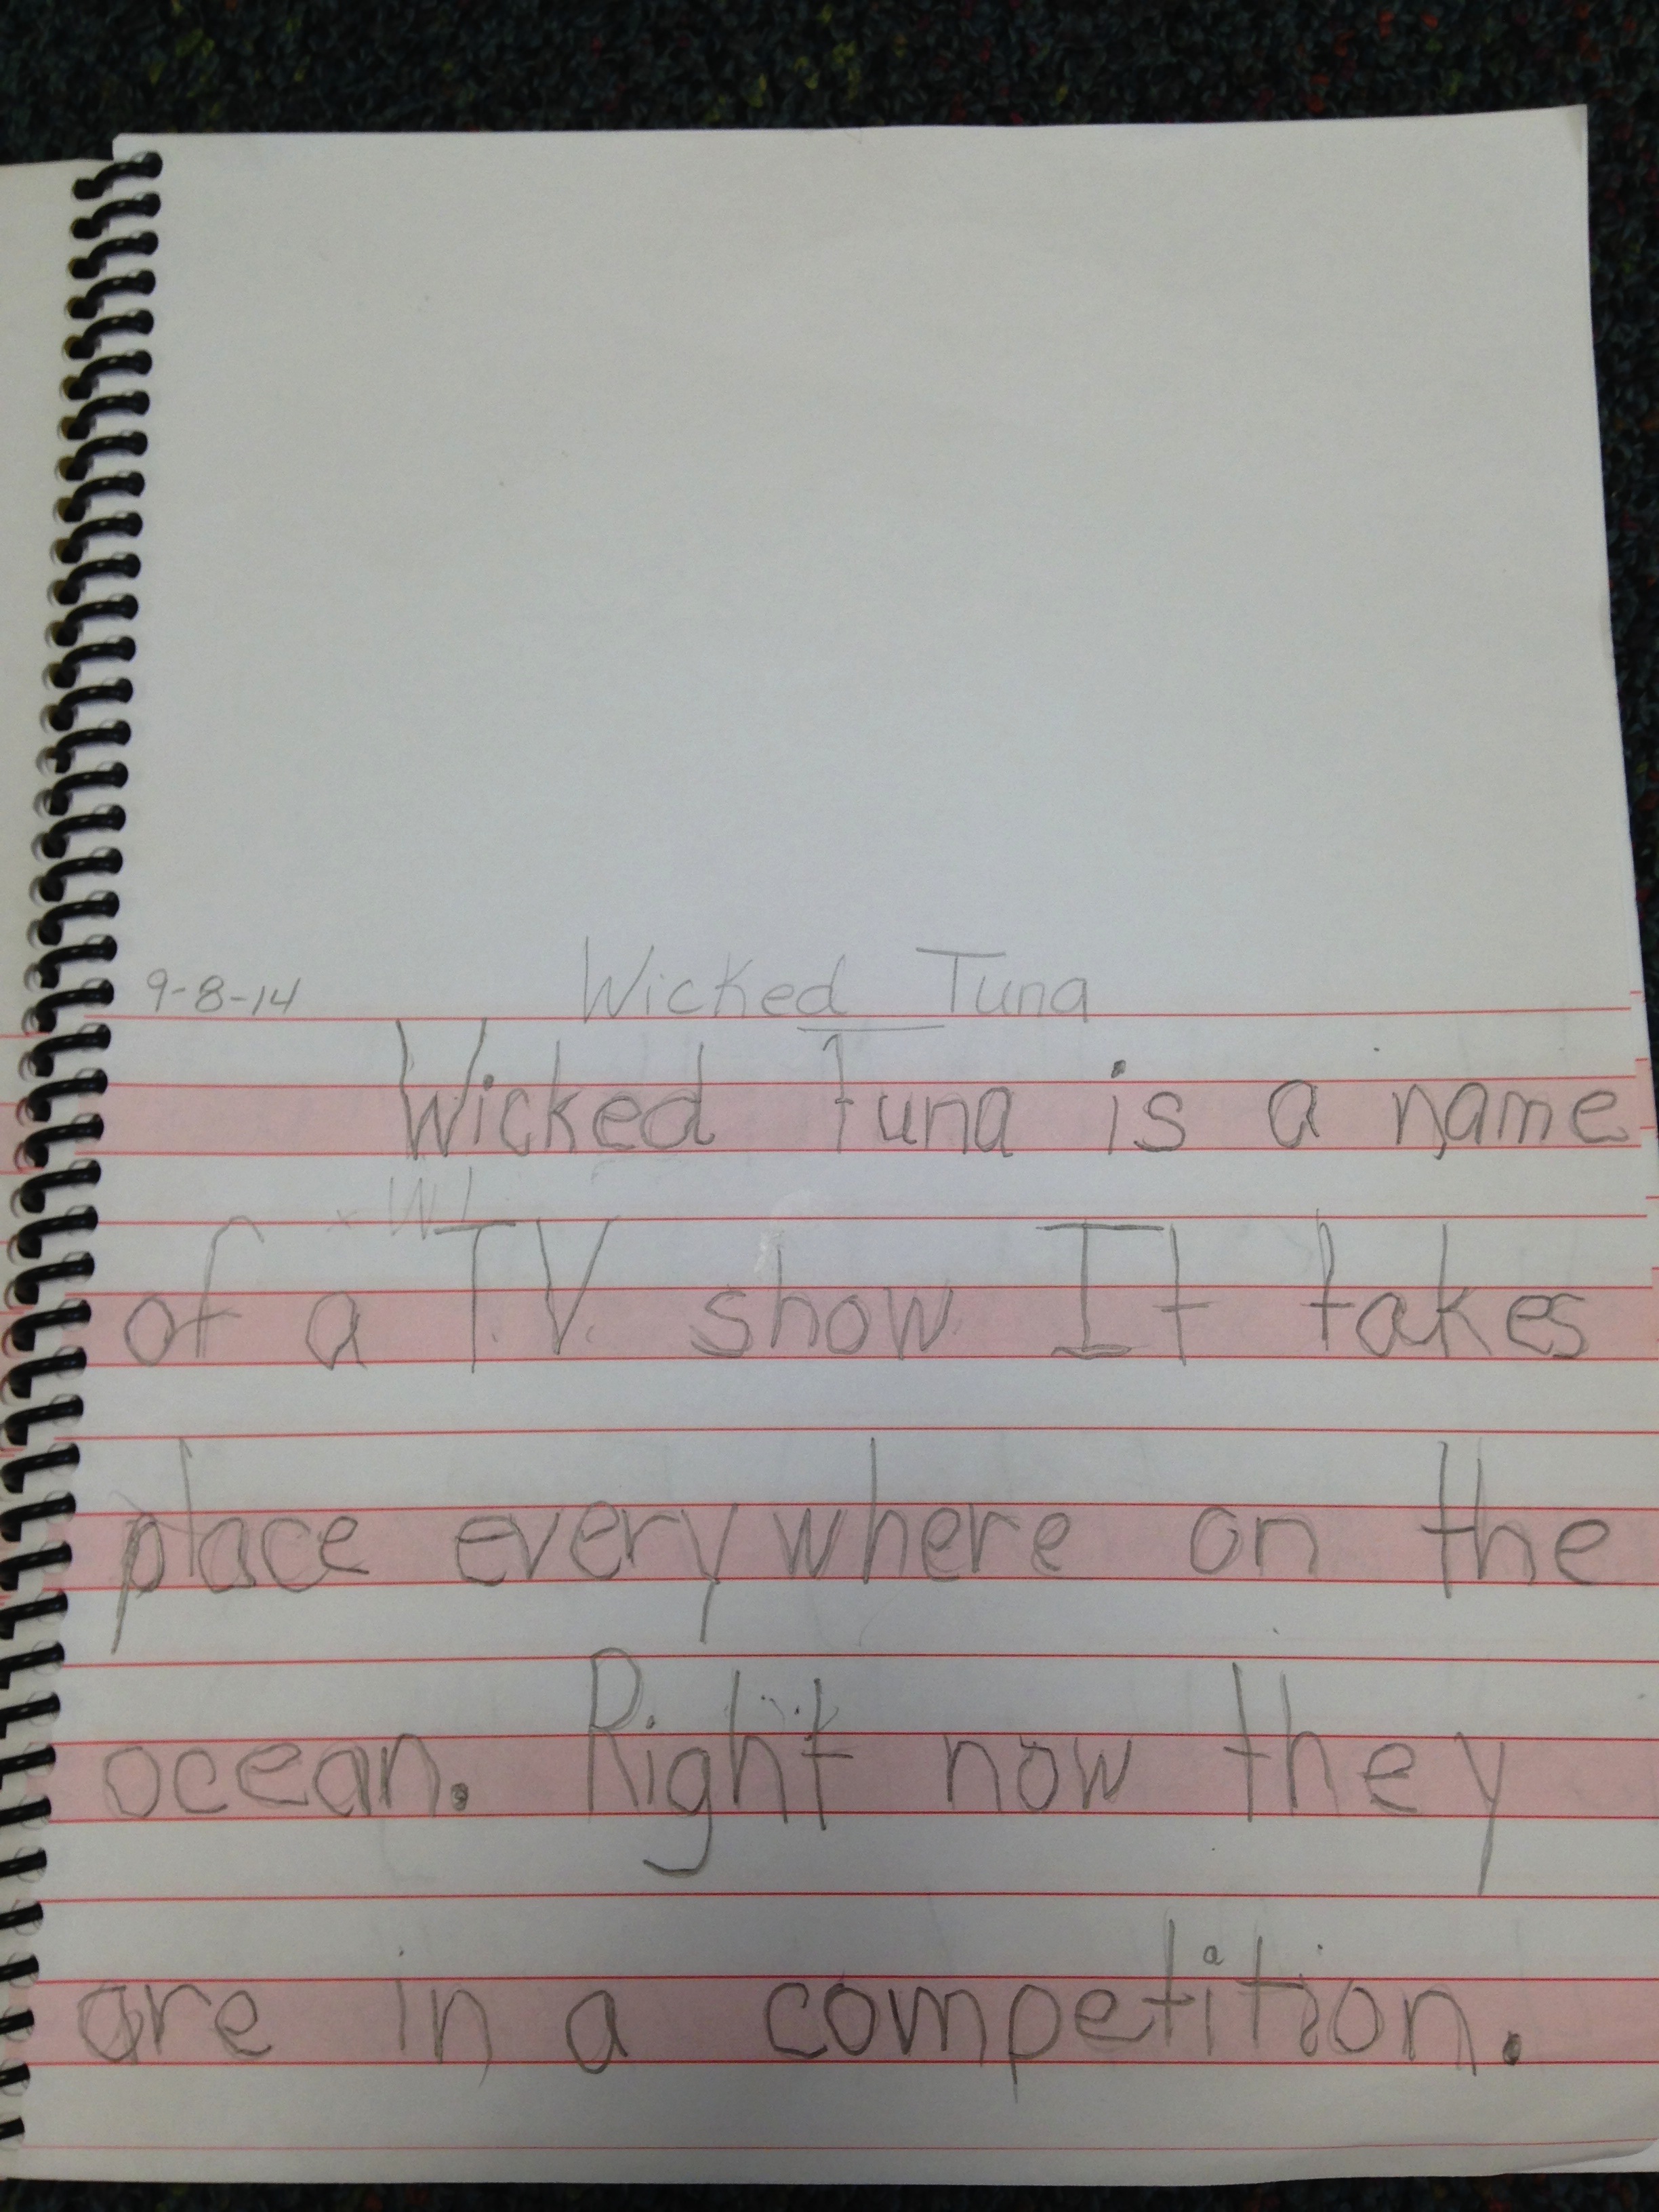 9-8-14 Wicked Tuna
Wicked tuna is a name
of a T.V. show. It takes
place everywhere on the
ocean. Right now they
are in a competition.